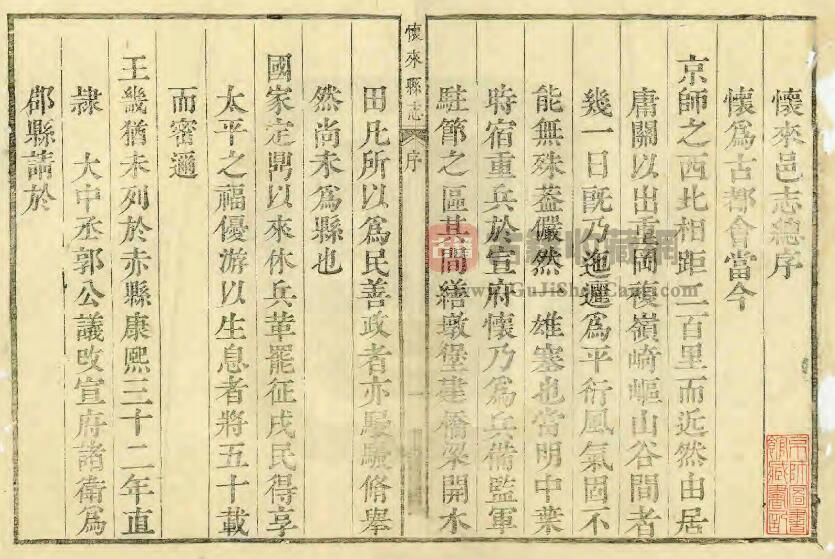 懷來邑志總序
懷爲古都會當今
京師之西北相距二百里而近然由居
庸關以出重岡複嶺崎嶇山谷間者
幾一日既乃迤邐爲平衍風氣固不
能無殊蓋儼然一雄塞也當明中葉
時宿重兵於宣府懷乃爲兵備監軍
駐節之區其間繕墩堡建橋梁開水
懷來縣志
序
一
田凡所以爲民善政者亦駸駸脩舉
然尚未爲縣也
國家定鼎以來休兵革罷征戍民得享
太平之福優游以生息者將五十載
而密邇
王畿猶未列於赤縣康熙三十二年直
隸 大中丞郭公議改宣府諸衛爲
郡縣請於
京師圖書館藏書記
收藏網
www.GuJiShouCang.com